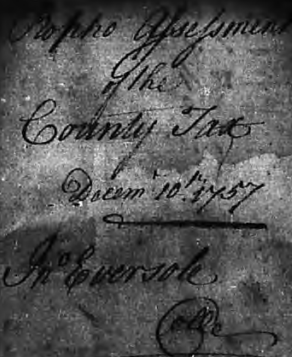 Rapho Assessment
of the
County Tax
Decemr 10th. 1757
Jno Eversole
Colle